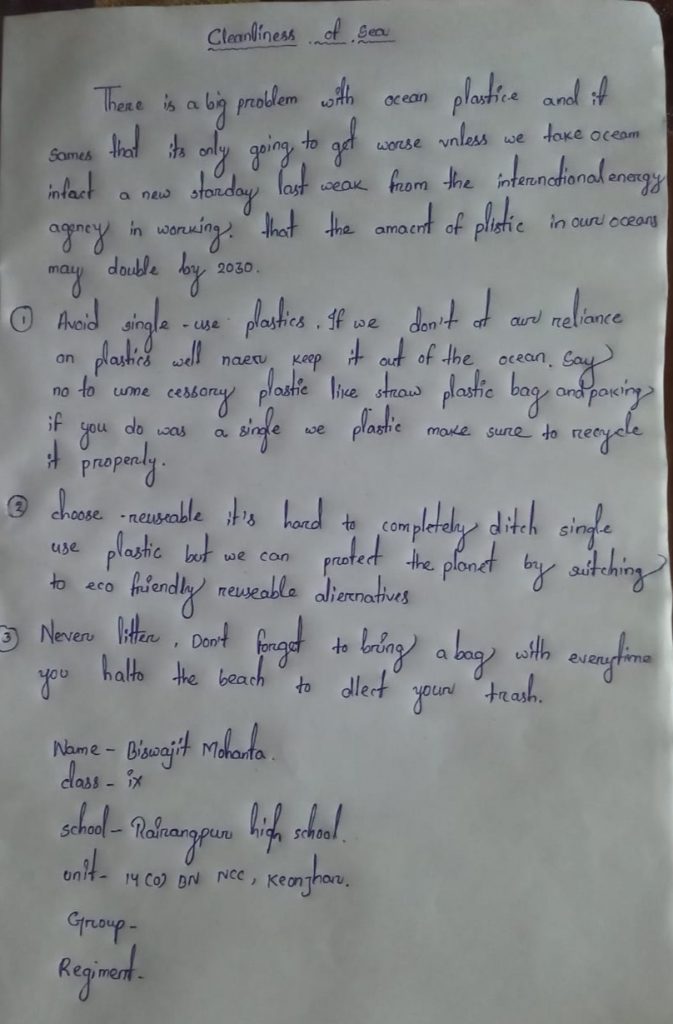 Cleanliness of Sea
There is a big problem with ocean plastice and it
sames that its only going to get worse unless we take ocean
infact a new starday last weak from the international energy
agency in working. that the amacnt of plistic in our oceans
may double by 2030.
① Avoid single-use plastics. If we don't at our reliance
on plastics well naeru keep it out of the ocean. Say
no to ume cessory plastic like straw plastic bag and paking
if you do was a single we plastic make sure to recycle
it properly.
② choose -reuseable it's hard to completely ditch single
use plastic but we can protect the planet by suitching
to eco friendly reuseable aliernatives
③ Never litter, Don't forget to bring a bag with everytime
you halto the beach to dlect your trash.
Name - Biswajit Mohanta.
class - ix
school - Rairangpur high school.
unit - 14 (O) BN NCC, Keonjhar.
Group -
Regiment -